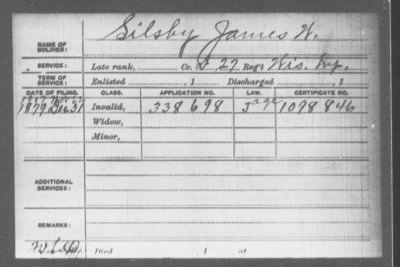 Silsby James W.
NAME OF SOLDIER:
SERVICE: Late rank, Co. 27 Reg't Wis. Inf.
TERM OF SERVICE: Enlisted , 1 Discharged , 1
DATE OF FILING. CLASS. APPLICATION NO. LAW. CERTIFICATE NO.
1879 Dec 31 Invalid, 338 698 1098 846
Widow,
Minor,
ADDITIONAL SERVICES:
REMARKS:
Died 1 at